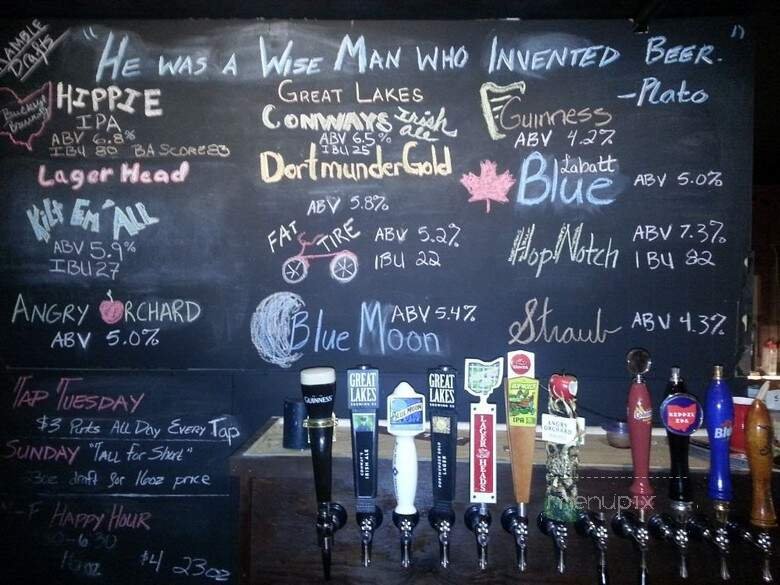 "HE WAS A WISE MAN WHO INVENTED BEER."
-Plato
Drafts
HIPPIE
IPA
ABV 6.8%
IBU 80 BA SCORE 83
Lager Head
KILT EM' ALL
ABV 5.9%
IBU 27
ANGRY ORCHARD
ABV 5.0%
GREAT LAKES
CONWAYS Irish ale
ABV 6.5%
IBU 25
DortmunderGold
ABV 5.8%
FAT TIRE
ABV 5.2%
IBU 22
Blue Moon
ABV 5.4%
Guinness
ABV 4.2%
Labatt
Blue
ABV 5.0%
Hop Notch
ABV 7.3%
IBU 82
Straub
ABV 4.3%
TAP TUESDAY
$3 Pints All Day Every Tap
SUNDAY "Tall for Short"
23oz draft for 16oz price
F HAPPY HOUR
$4 23oz
GUINNESS
GREAT
LAKES
BREWING CO
IRISH ALE
BLUE MOON
GREAT
LAKES
BREWING CO
LAGER
LAGER HEADS
IPA
ANGRY
ORCHARD
menupix